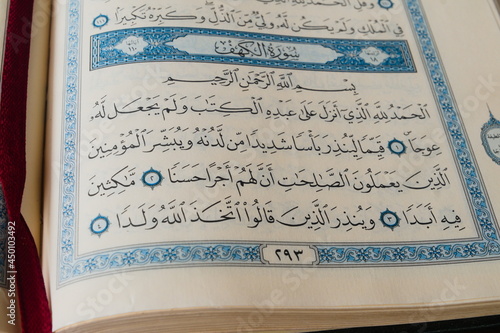 وَقُلِ ٱلْحَمْدُ لِلَّهِ ٱلَّذِى لَمْ
فِي ٱلْمُلْكِ وَلَمْ يَكُن لَّهُۥ وَلِيٌّ مِّنَ ٱلذُّلِّ وَكَبِّرْهُ تَكْبِيرًا
سُورَةُ الْكَهْفِ
بِسْمِ ٱللَّهِ ٱلرَّحْمَٰنِ ٱلرَّحِيمِ
ٱلْحَمْدُ لِلَّهِ ٱلَّذِىٓ أَنزَلَ عَلَىٰ عَبْدِهِ ٱلْكِتَٰبَ وَلَمْ يَجْعَل لَّهُۥ
عِوَجَا ١ قَيِّمًا لِّيُنذِرَ بَأْسًا شَدِيدًا مِّن لَّدُنْهُ وَيُبَشِّرَ ٱلْمُؤْمِنِينَ
ٱلَّذِينَ يَعْمَلُونَ ٱلصَّٰلِحَٰتِ أَنَّ لَهُمْ أَجْرًا حَسَنًا ٢ مَّٰكِثِينَ
فِيهِ أَبَدًا ٣ وَيُنذِرَ ٱلَّذِينَ قَالُوا۟ ٱتَّخَذَ ٱللَّهُ وَلَدًا ٤
٢٩٣
Adobe Stock | #450103492